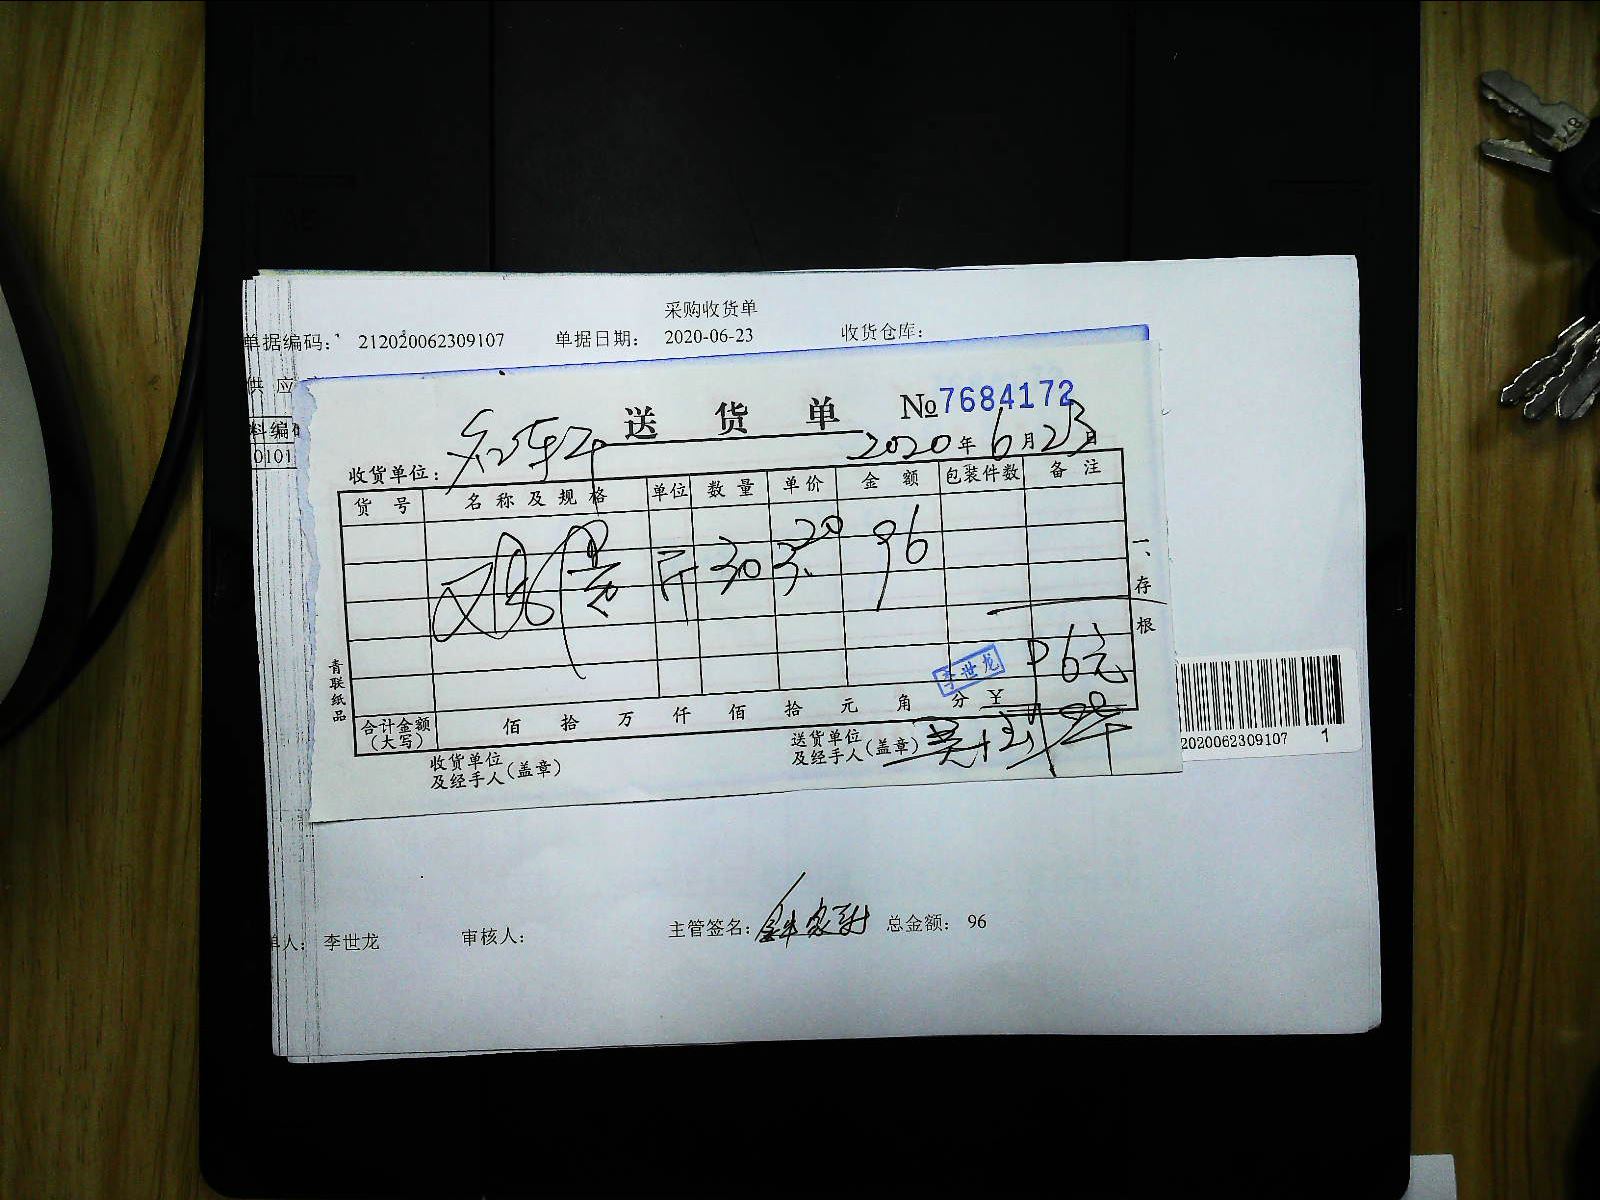 采购收货单
单据编码: 212020062309107 单据日期: 2020-06-23 收货仓库:
供应
料编
0101
送货单 №7684172
2020年6月23日
收货单位:
货号 名称及规格 单位 数量 单价 金额 包装件数 备注
鸡蛋 斤 30 3.20 96
一、存根
李世龙
96元
青联纸品
合计金额(大写) 佰 拾 万 仟 佰 拾 元 角 分 ¥
收货单位及经手人(盖章) 送货单位及经手人(盖章)
2020062309107 1
单人: 李世龙 审核人: 主管签名: 总金额: 96